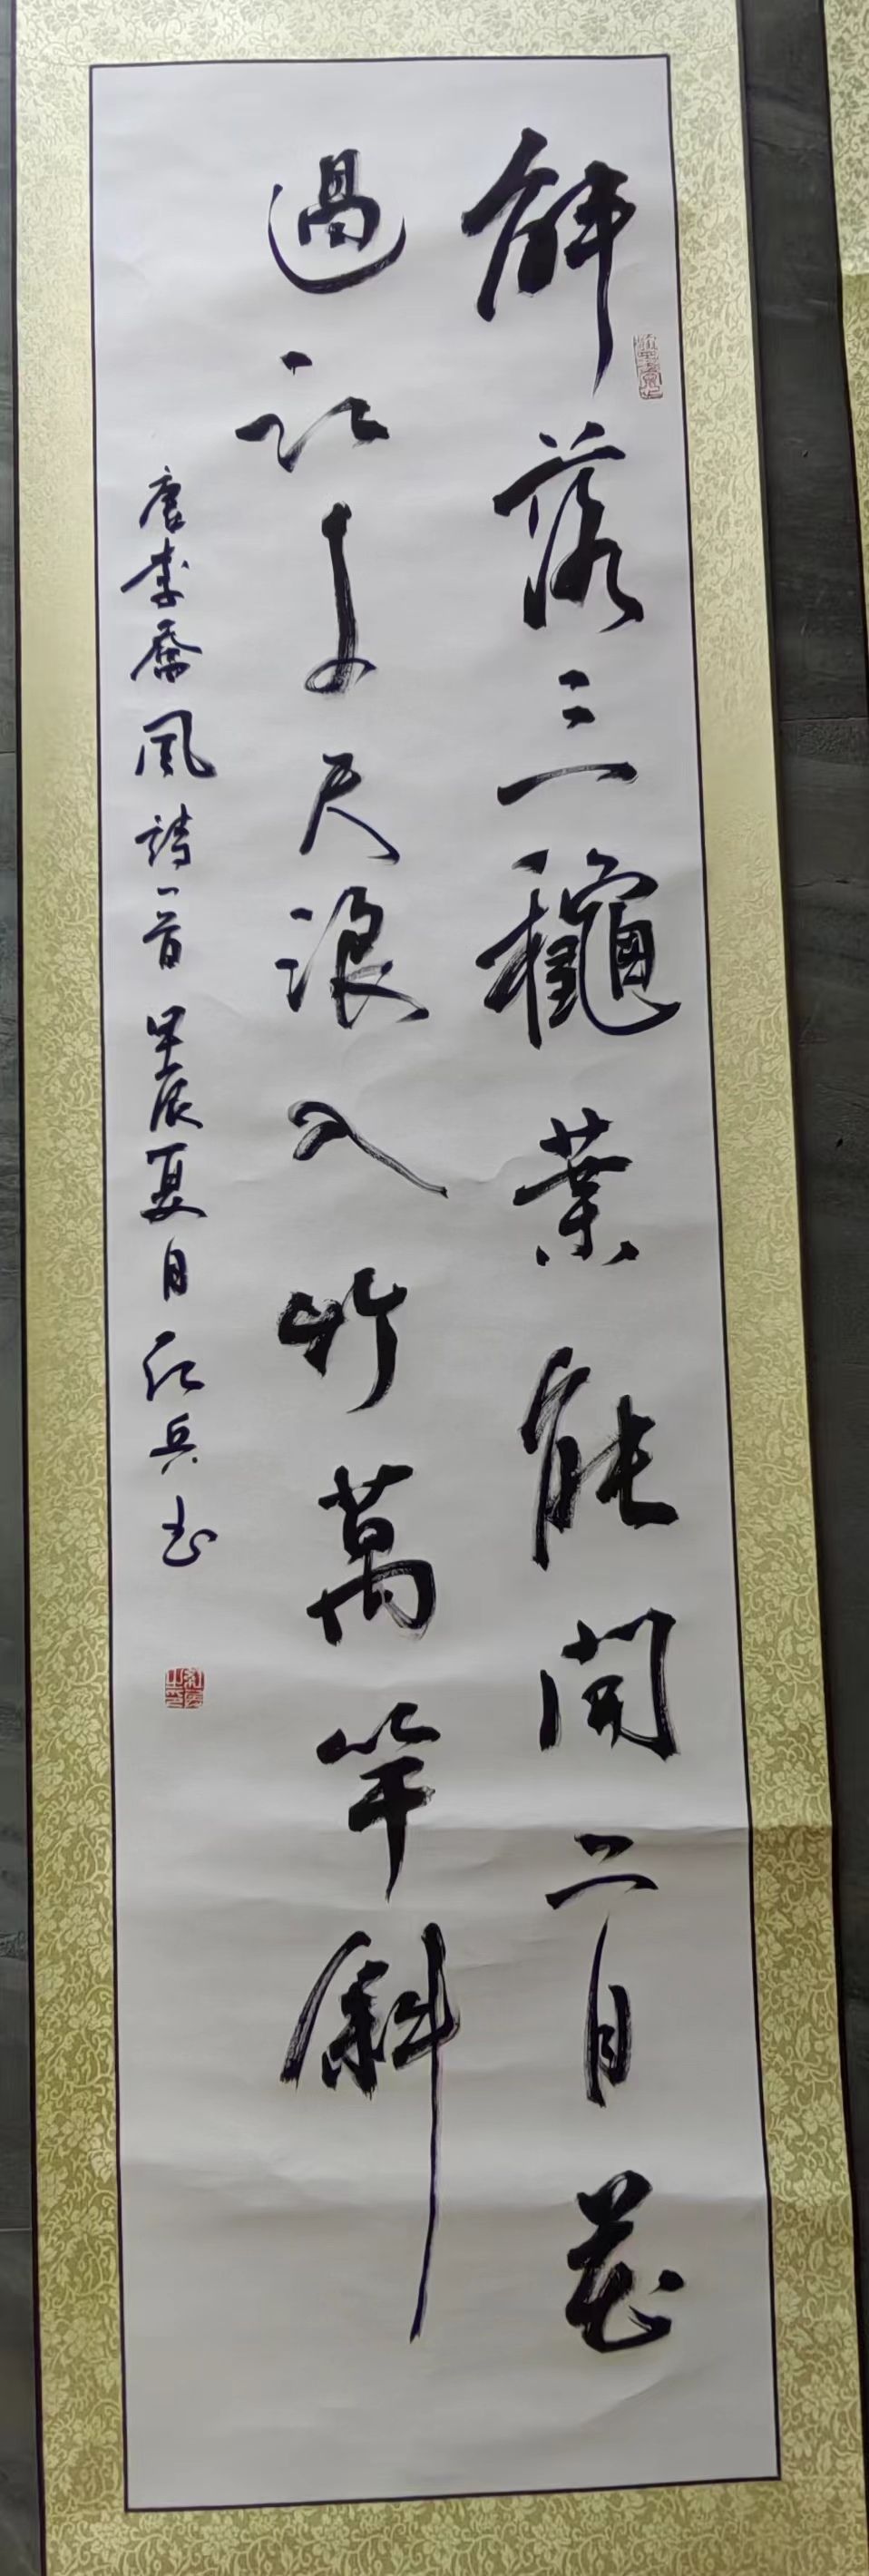 解落三穐葉能開二月花
過江千尺浪入竹萬竿斜
唐李嶠風詩一首甲辰夏月紅兵书